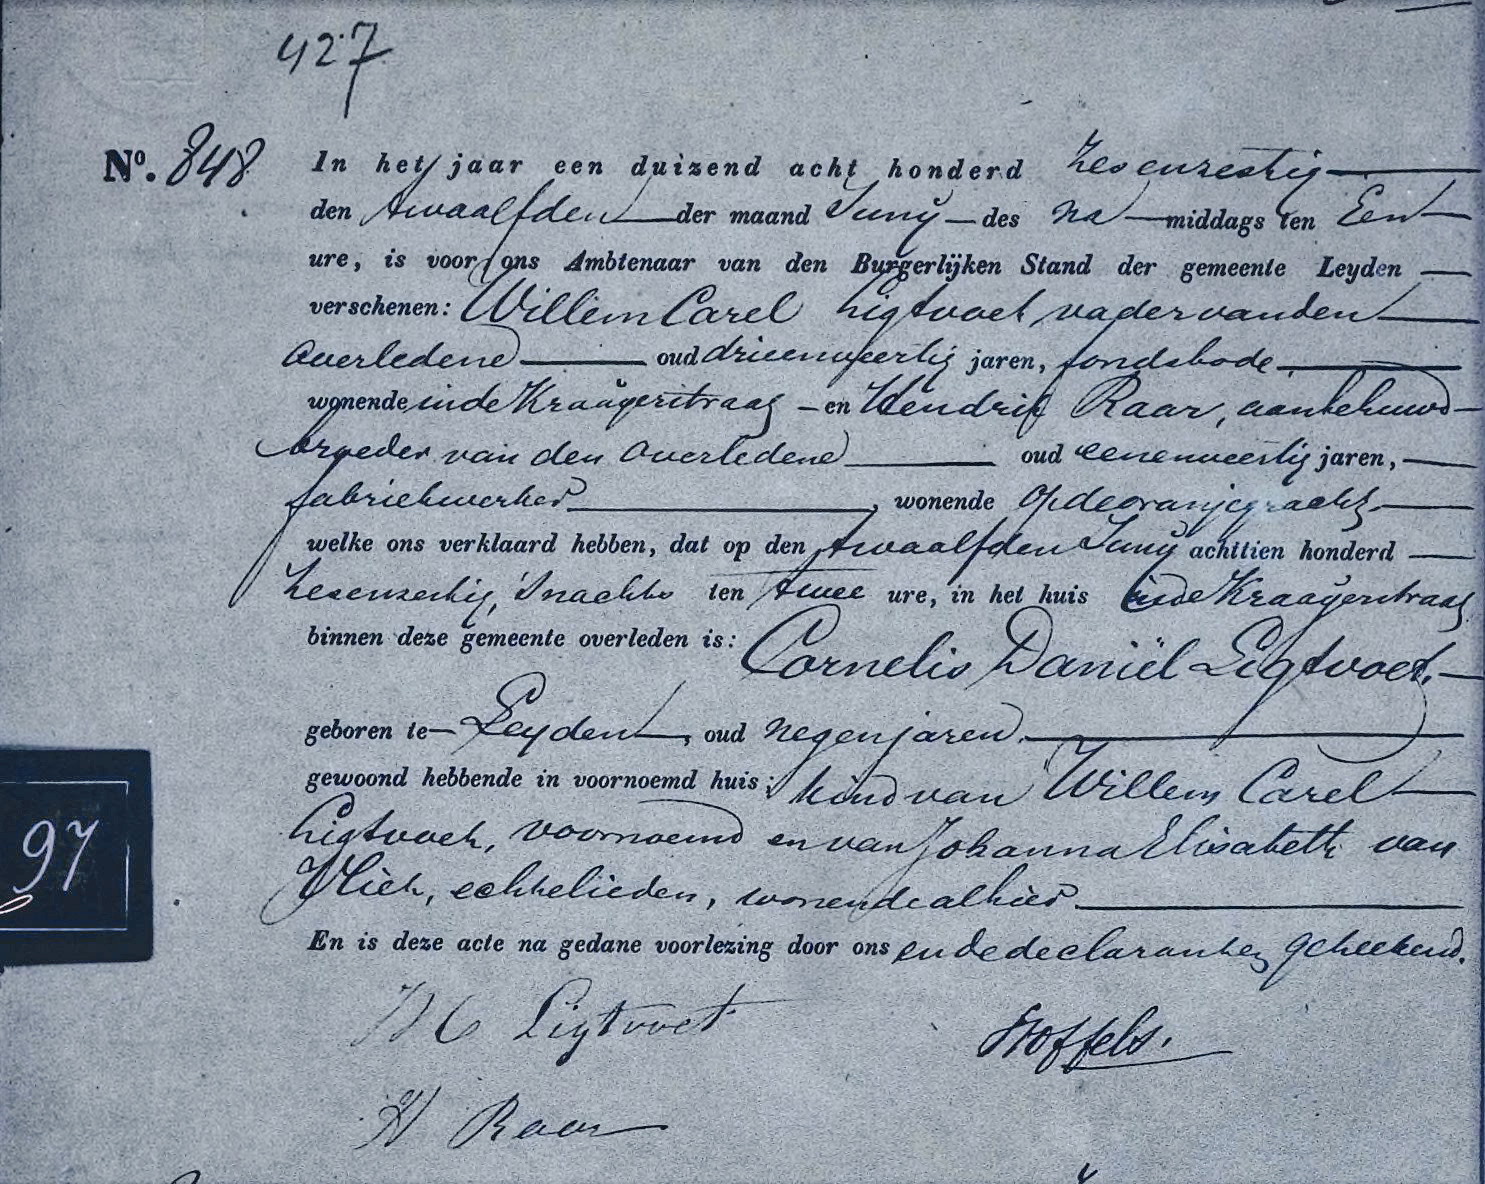 427
No. 848 In het jaar een duizend acht honderd zesenzestig
den twaalfden der maand Juny des na middags ten Een
ure, is voor ons Ambtenaar van den Burgerlijken Stand der gemeente Leyden
verschenen: Willem Carel Ligtvoet, vader van den
overledene oud drieenveertig jaren, fondsbode,
wonende in de Kraaÿerstraat en Hendrik Raar, aanbehuwd
broeder van den overledene oud eenenveertig jaren,
fabriekwerker, wonende op de oranjegracht
welke ons verklaard hebben, dat op den twaalfden Juny achttien honderd
zesenzestig, 'snachts ten twee ure, in het huis in de Kraaÿerstraat
binnen deze gemeente overleden is: Cornelis Daniël Ligtvoet,
geboren te Leyden, oud negen jaren
gewoond hebbende in voornoemd huis; kind van Willem Carel
Ligtvoet, voornoemd en van Johanna Elisabeth van
Vliet, echtelieden, wonende alhier
En is deze acte na gedane voorlezing door ons en de declaranten geteekend.
97
W C Ligtvoet
Stoffels.
H Raar